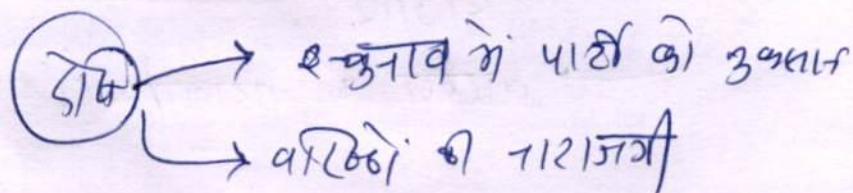 दोष → चुनाव में पार्टी को नुकसान
→ वरिष्ठों की नाराजगी